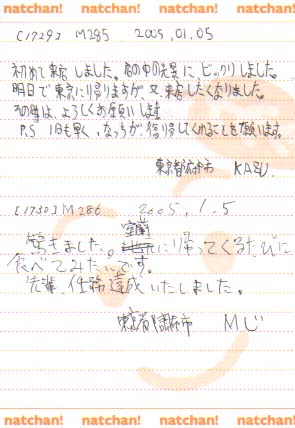 natchan! natchan! natchan! natchan!
[1729] M285 2005.01.05
初めて来店しました。店の中の光景に、ビックリしました。
明日で東京に帰りますが、又、来店したくなりました。
その時は、よろしくお願いします
P.S 1日も早く、なっちが復帰してくれることを願います。
東京都府中市 KAZU.
[1730] M286 2005.1.5
驚きました。室蘭に帰ってくるたびに
食べてみたいです。
先輩、任務達成いたしました。
東京都調布市 Mじ
natchan! natchan! natchan! natchan!